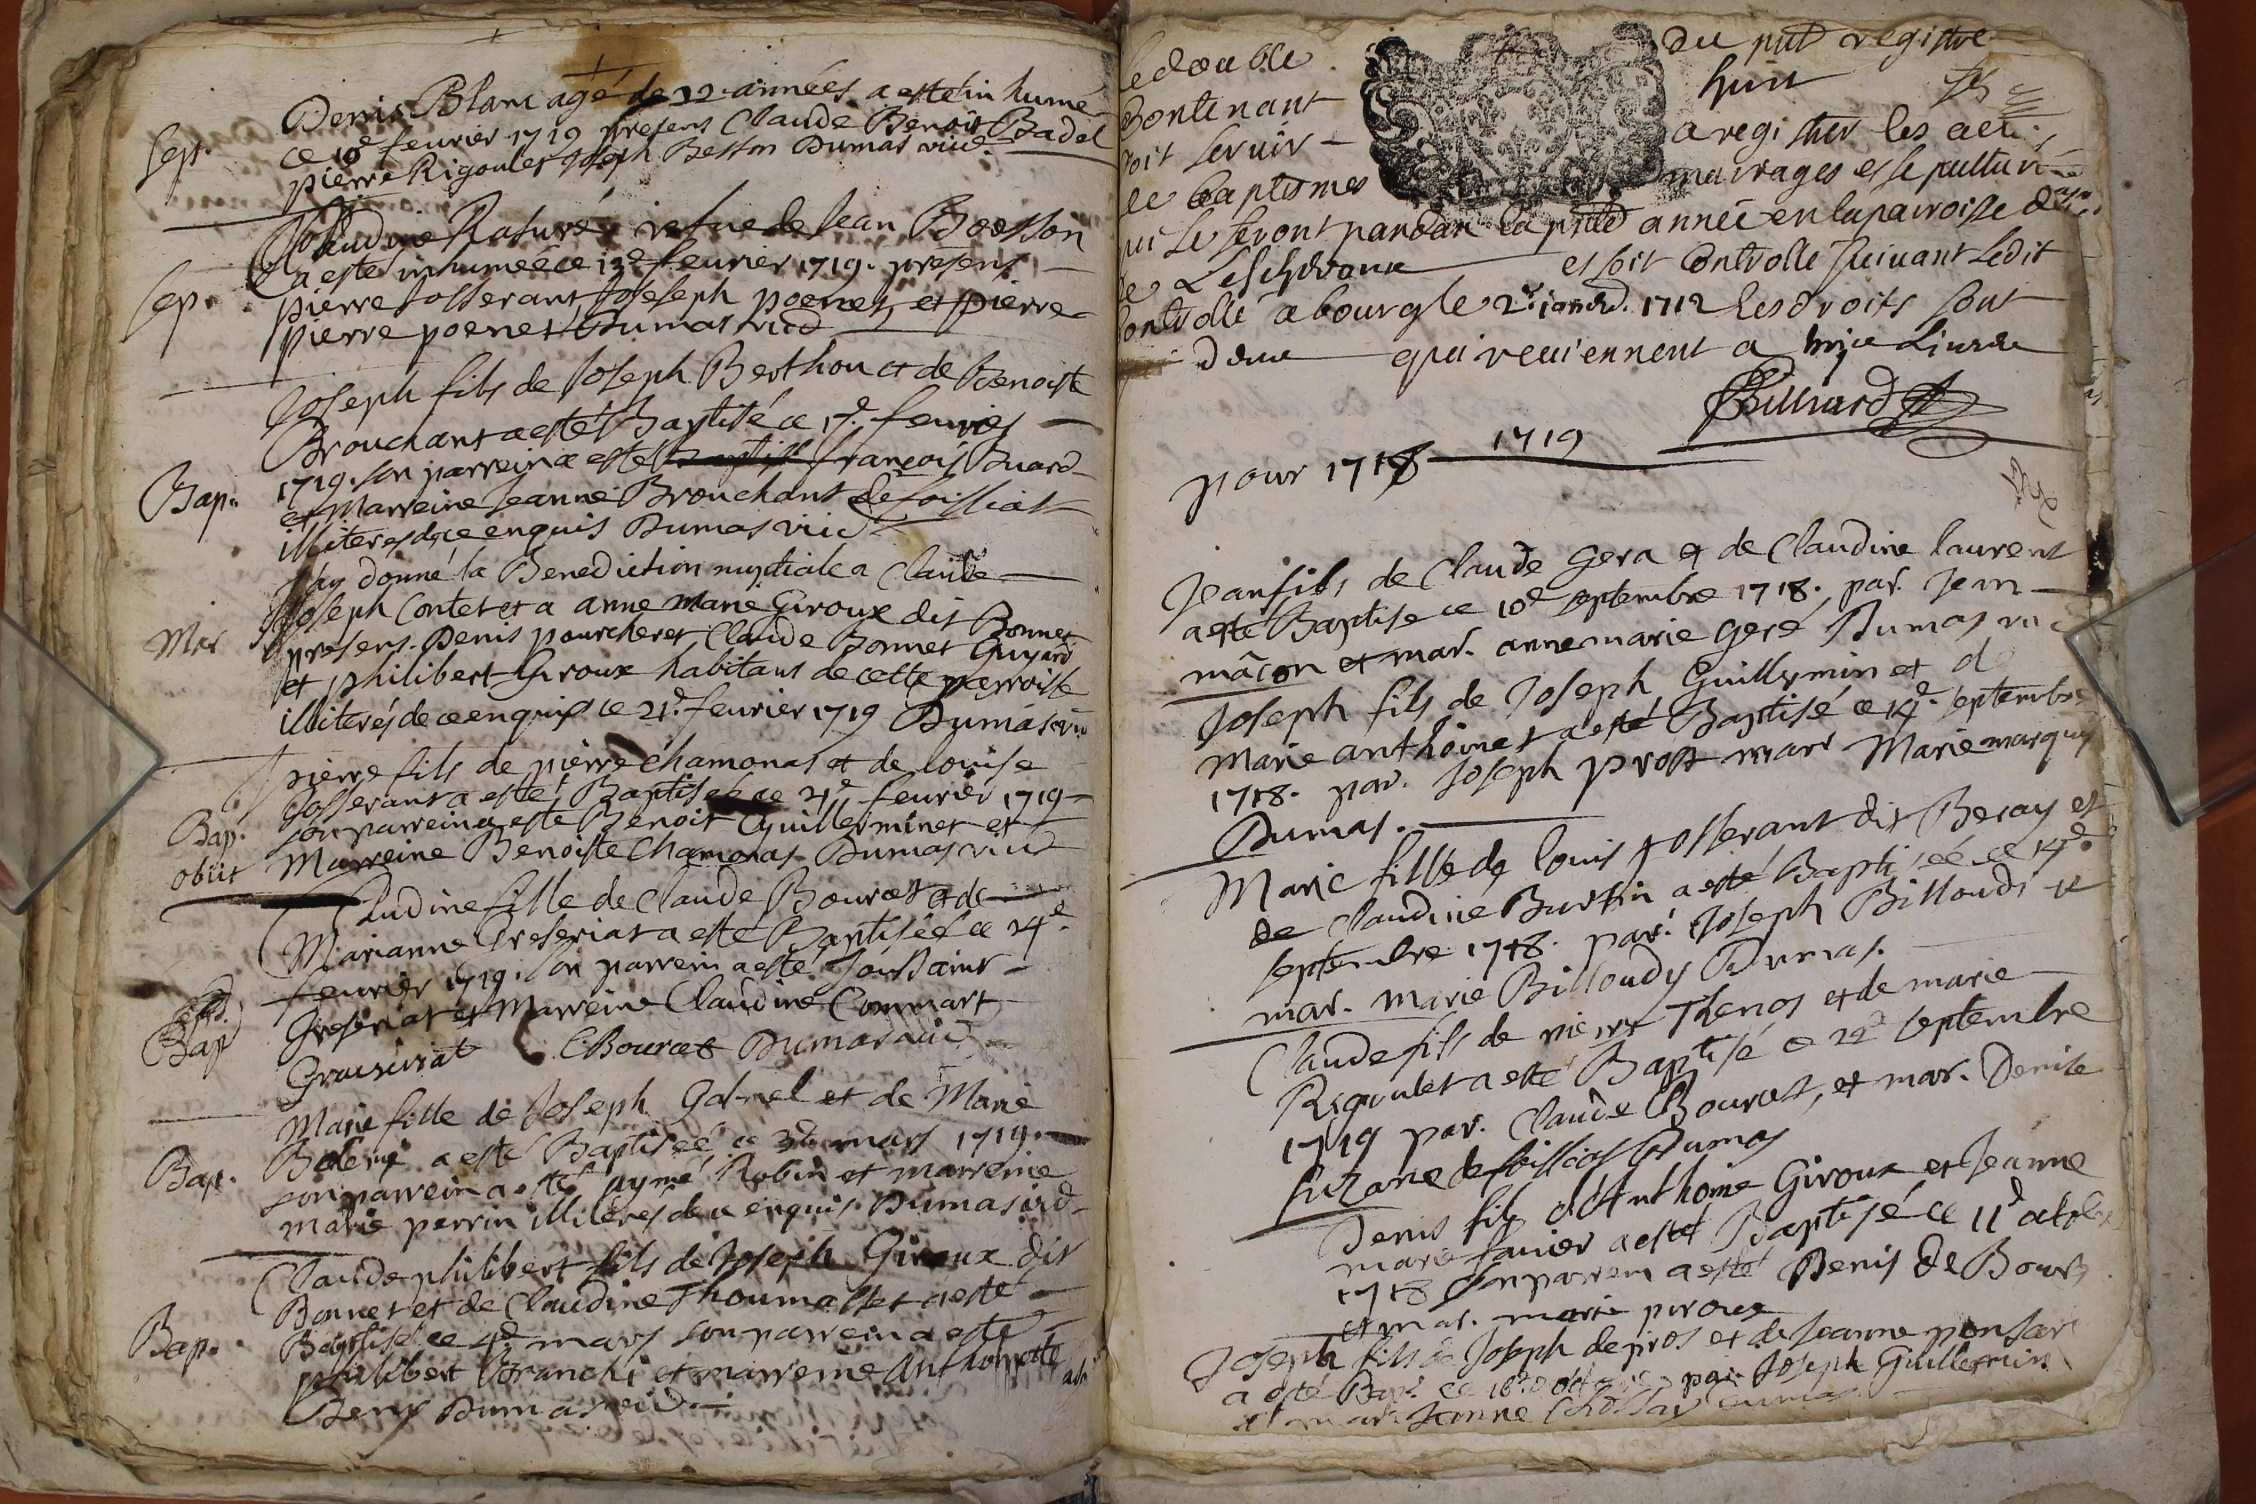 Denis Blanc agé de 22 années a esté in humé
Sept. ce 10e feurier 1719 presens Claude Benoit Badel
pierre Rigoulet Joseph Besson Dumas vicd
Claudine Raturé vefue de Jean Boesson
a esté inhumée ce 13e feurier 1719. presens
Sep. pierre Josserant Joseseph poenet et pierre
pierre poenet Dumas vicd
Joseph fils de Joseph Berthou et de Benoiste
Brouchant a esté Baptisé ce 17e feurier
1719. son parrein a esté françois Buard
Bap. et Marreine Jeanne Brouchant de foissiat
illiteres de ce enquis Dumas vicd
J'ay donné la Benediction nuptiale a Claude
Joseph Contet et a anne Marie Giroux dit Bonnet
Mar presens. Denis pourcheret Claude Bonnet Guyard
et philibert Giroux habitans de cette parroisse
illiterés de ce enquis ce 21e feurier 1719 Dumas vicd
pierre fils de pierre Chamonas et de louise
Josserant a esté Baptisé ce 21e feurier 1719
Bap. son parrein a esté Benoit Guilleminet et
obiit Marreine Benoiste Chamonas Dumas vicd
Claudine fille de Claude Bourcet et de
Marianne Greseriat a esté Baptiséé ce 24e
feurier 1719. son parrein a esté Toussaint
Bap Greseriat et Marreine Claudine Commart
CBourcet Dumas vicd
Marie fille de Joseph Gabriel et de Marie
a esté Baptiséé ce 3e mars 1719.
Bap. son parrein a esté aymé Robin et marreine
marie perrin illiterés de ce enquis Dumas vicd
Claude philibert fils de Joseph Giroux dit
Bonnet et de Claudine Thoumasset a esté
Bap. Baptisé ce 4e mars son parrein a esté
philibert franchi et marreine Anthoinette
Beny Dumas vicd
le double du pnt registre
Contenant huit
soit servir a registrer les actes
de baptismes mairages et sepultur
qui se feront pandant la pnte année en la pairoisse de
Lescheroux et soit Controllé suivant Ledit
Controllé a bourg le 2e janvr. 1712 les droits sont
deux qui reuiennent a Livre
Billiard
pour 1718 1719
Jean fils de Claude Gera et de Claudine laurent
a esté Baptise ce 10e septembre 1718. par. Jean
mâcon et mar. anne marie geré Dumas vic
Joseph fils de Joseph Guillymin et de
Marie anthoinet a esté Baptisé ce 14e septembre
1718. par. Joseph prost marr Marie marquis
Dumas.
Marie fille de louis Josserant dit Beray et
de Claudine Burtin a esté Baptiséé ce 14e
septembre 1718. par. Joseph Billoudi et
mar. marie Billoudy Dumas.
Claude fils de pierre Thenos et de marie
Rigoulet a esté Baptisé ce 22e septembre
1719 par. Claude Bourcet, et mar. Denise
Suzane de foissiat Dumas
Denis fils d'Anthoine Giroux et Jeanne
marie Janier a esté Baptisé ce 11e octobre
1718 son parrein a esté Denis de Bourg
et mar. marie piroux
Joseph fils de Joseph depiros et de Jeanne ponsar
a esté Bap. ce 16e octobre par. Joseph Guillermin
et mar. Jeanne